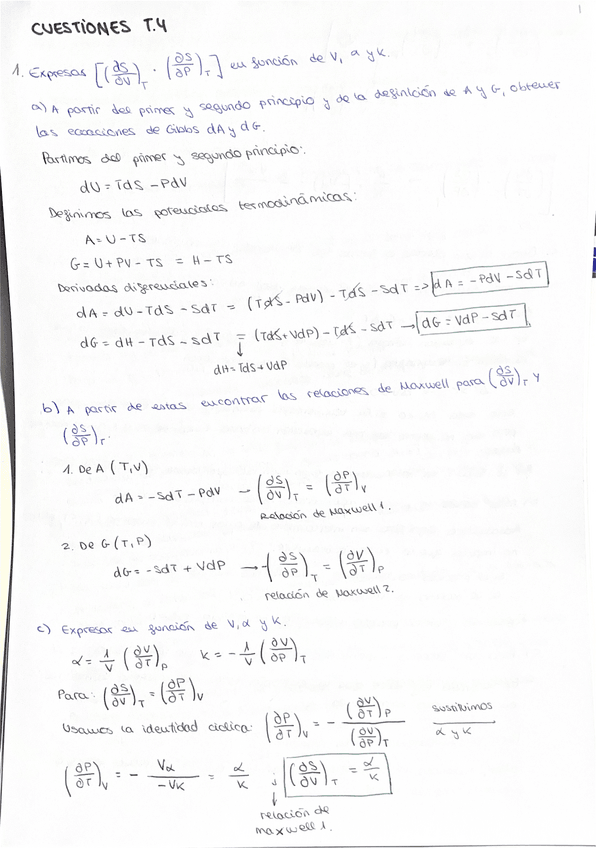 1
CUESTIONES T.4
1. Expresas [(∂S/∂V)_T · (∂S/∂P)_T] en función de V, α y K.
a) A partir del primer y segundo principio y de la definición de A y G, obtener
las ecuaciones de Gibbs dA y dG.
Partimos del primer y segundo principio:
dU = TdS - PdV
Definimos las potenciales termodinámicas:
A = U - TS
G = U + PV - TS = H - TS
Derivadas diferenciales:
dA = dU - TdS - SdT = (TdS - PdV) - TdS - SdT => dA = -PdV - SdT
dG = dH - TdS - SdT = (TdS + VdP) - TdS - SdT → dG = VdP - SdT
↓
dH = TdS + VdP
b) A partir de estas encontrar las relaciones de Maxwell para (∂S/∂V)_T y
(∂S/∂P)_T.
1. De A (T,V)
dA = -SdT - PdV - (∂S/∂V)_T = (∂P/∂T)_V
Relación de Maxwell 1.
2. De G (T,P)
dG = -SdT + VdP → -(∂S/∂P)_T = (∂V/∂T)_P
relación de Maxwell 2.
c) Expresar en función de V, α y K.
α = 1/V (∂V/∂T)_P K = - 1/V (∂V/∂P)_T
Para: (∂S/∂V)_T = (∂P/∂T)_V
Usamos la identidad cíclica: (∂P/∂T)_V = - (∂V/∂T)_P / (∂V/∂P)_T sustituimos α y K
(∂P/∂T)_V = - Vα / -VK = α/K ; (∂S/∂V)_T = α/K
↓
relación de
maxwell 1.